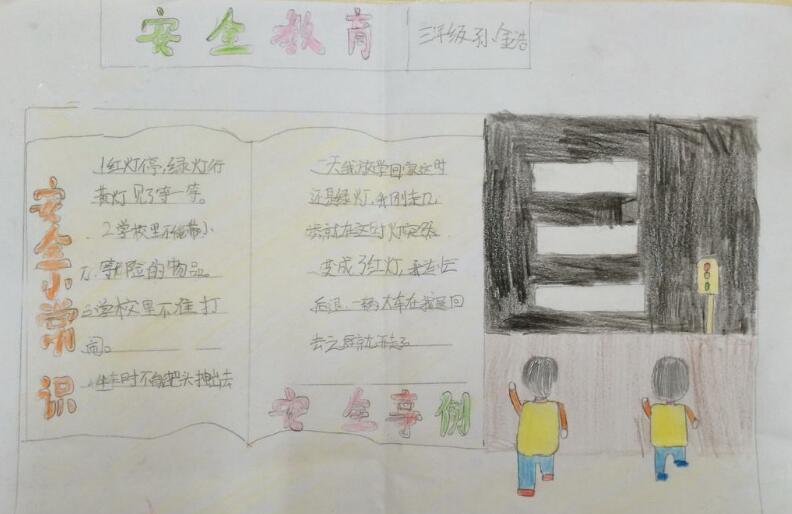 安全教育
三年级孙金浩
安全小常识
1红灯停,绿灯行
黄灯见了等一等。
2学校里不能带小
刀等险的物品。
3学校里不准打
闹。
4坐车时不能把头抽出去
一天我放学回家这时
还是绿灯,我刚走几
步就在这时灯突然
变成了红灯,我赶忙
后退一辆大车在我退回
去之后就开走了
安全事例